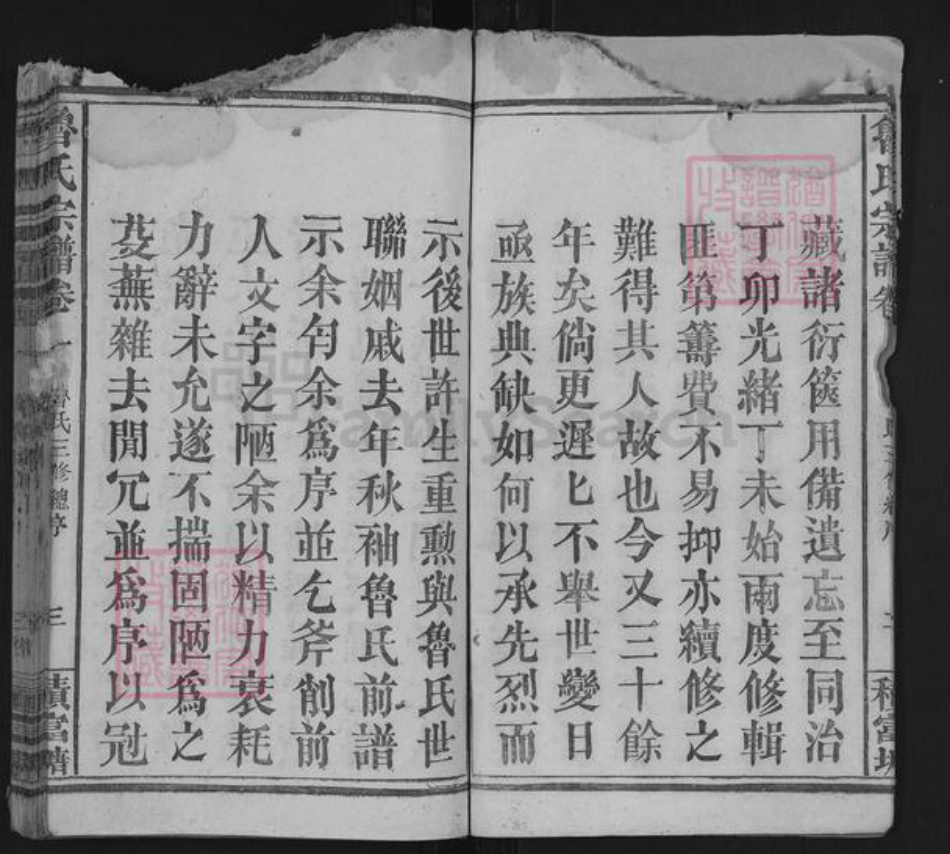 藏諸衍篋用備遺忘至同治
丁卯光緒丁未始兩度修輯
匪第籌費不易抑亦續修之
難得其人故也今又三十餘
年矣倘更遲匕不舉世變日
亟族典缺如何以承先烈而
示後世許生重勳與魯氏世
聯姻戚去年秋袖魯氏前譜
示余匄余為序並乞斧削前
人文字之陋余以精力衰耗
力辭未允遂不揣固陋為之
芟蕪雜去閒冗並為序以冠
魯氏宗譜卷一
魯氏三修總序
三
積富塘
FamilySearch